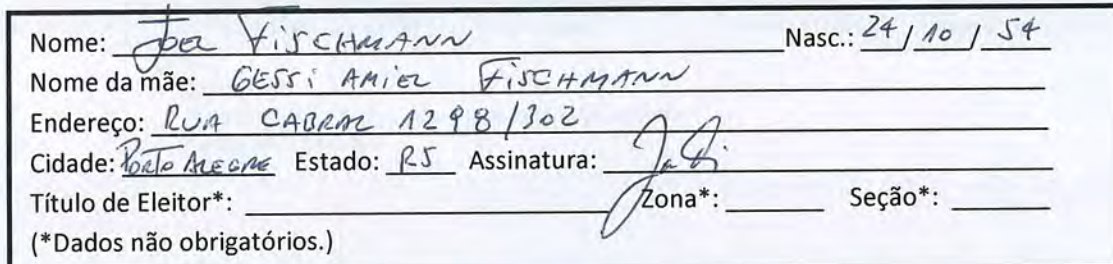 Nome: JOEL FISCHMANN Nasc.: 24/10/54
Nome da mãe: GESSI AMIEL FISCHMANN
Endereço: RUA CABRAL 1298/302
Cidade: PORTO ALEGRE Estado: RS Assinatura:
Título de Eleitor*: Zona*: Seção*:
(*Dados não obrigatórios.)